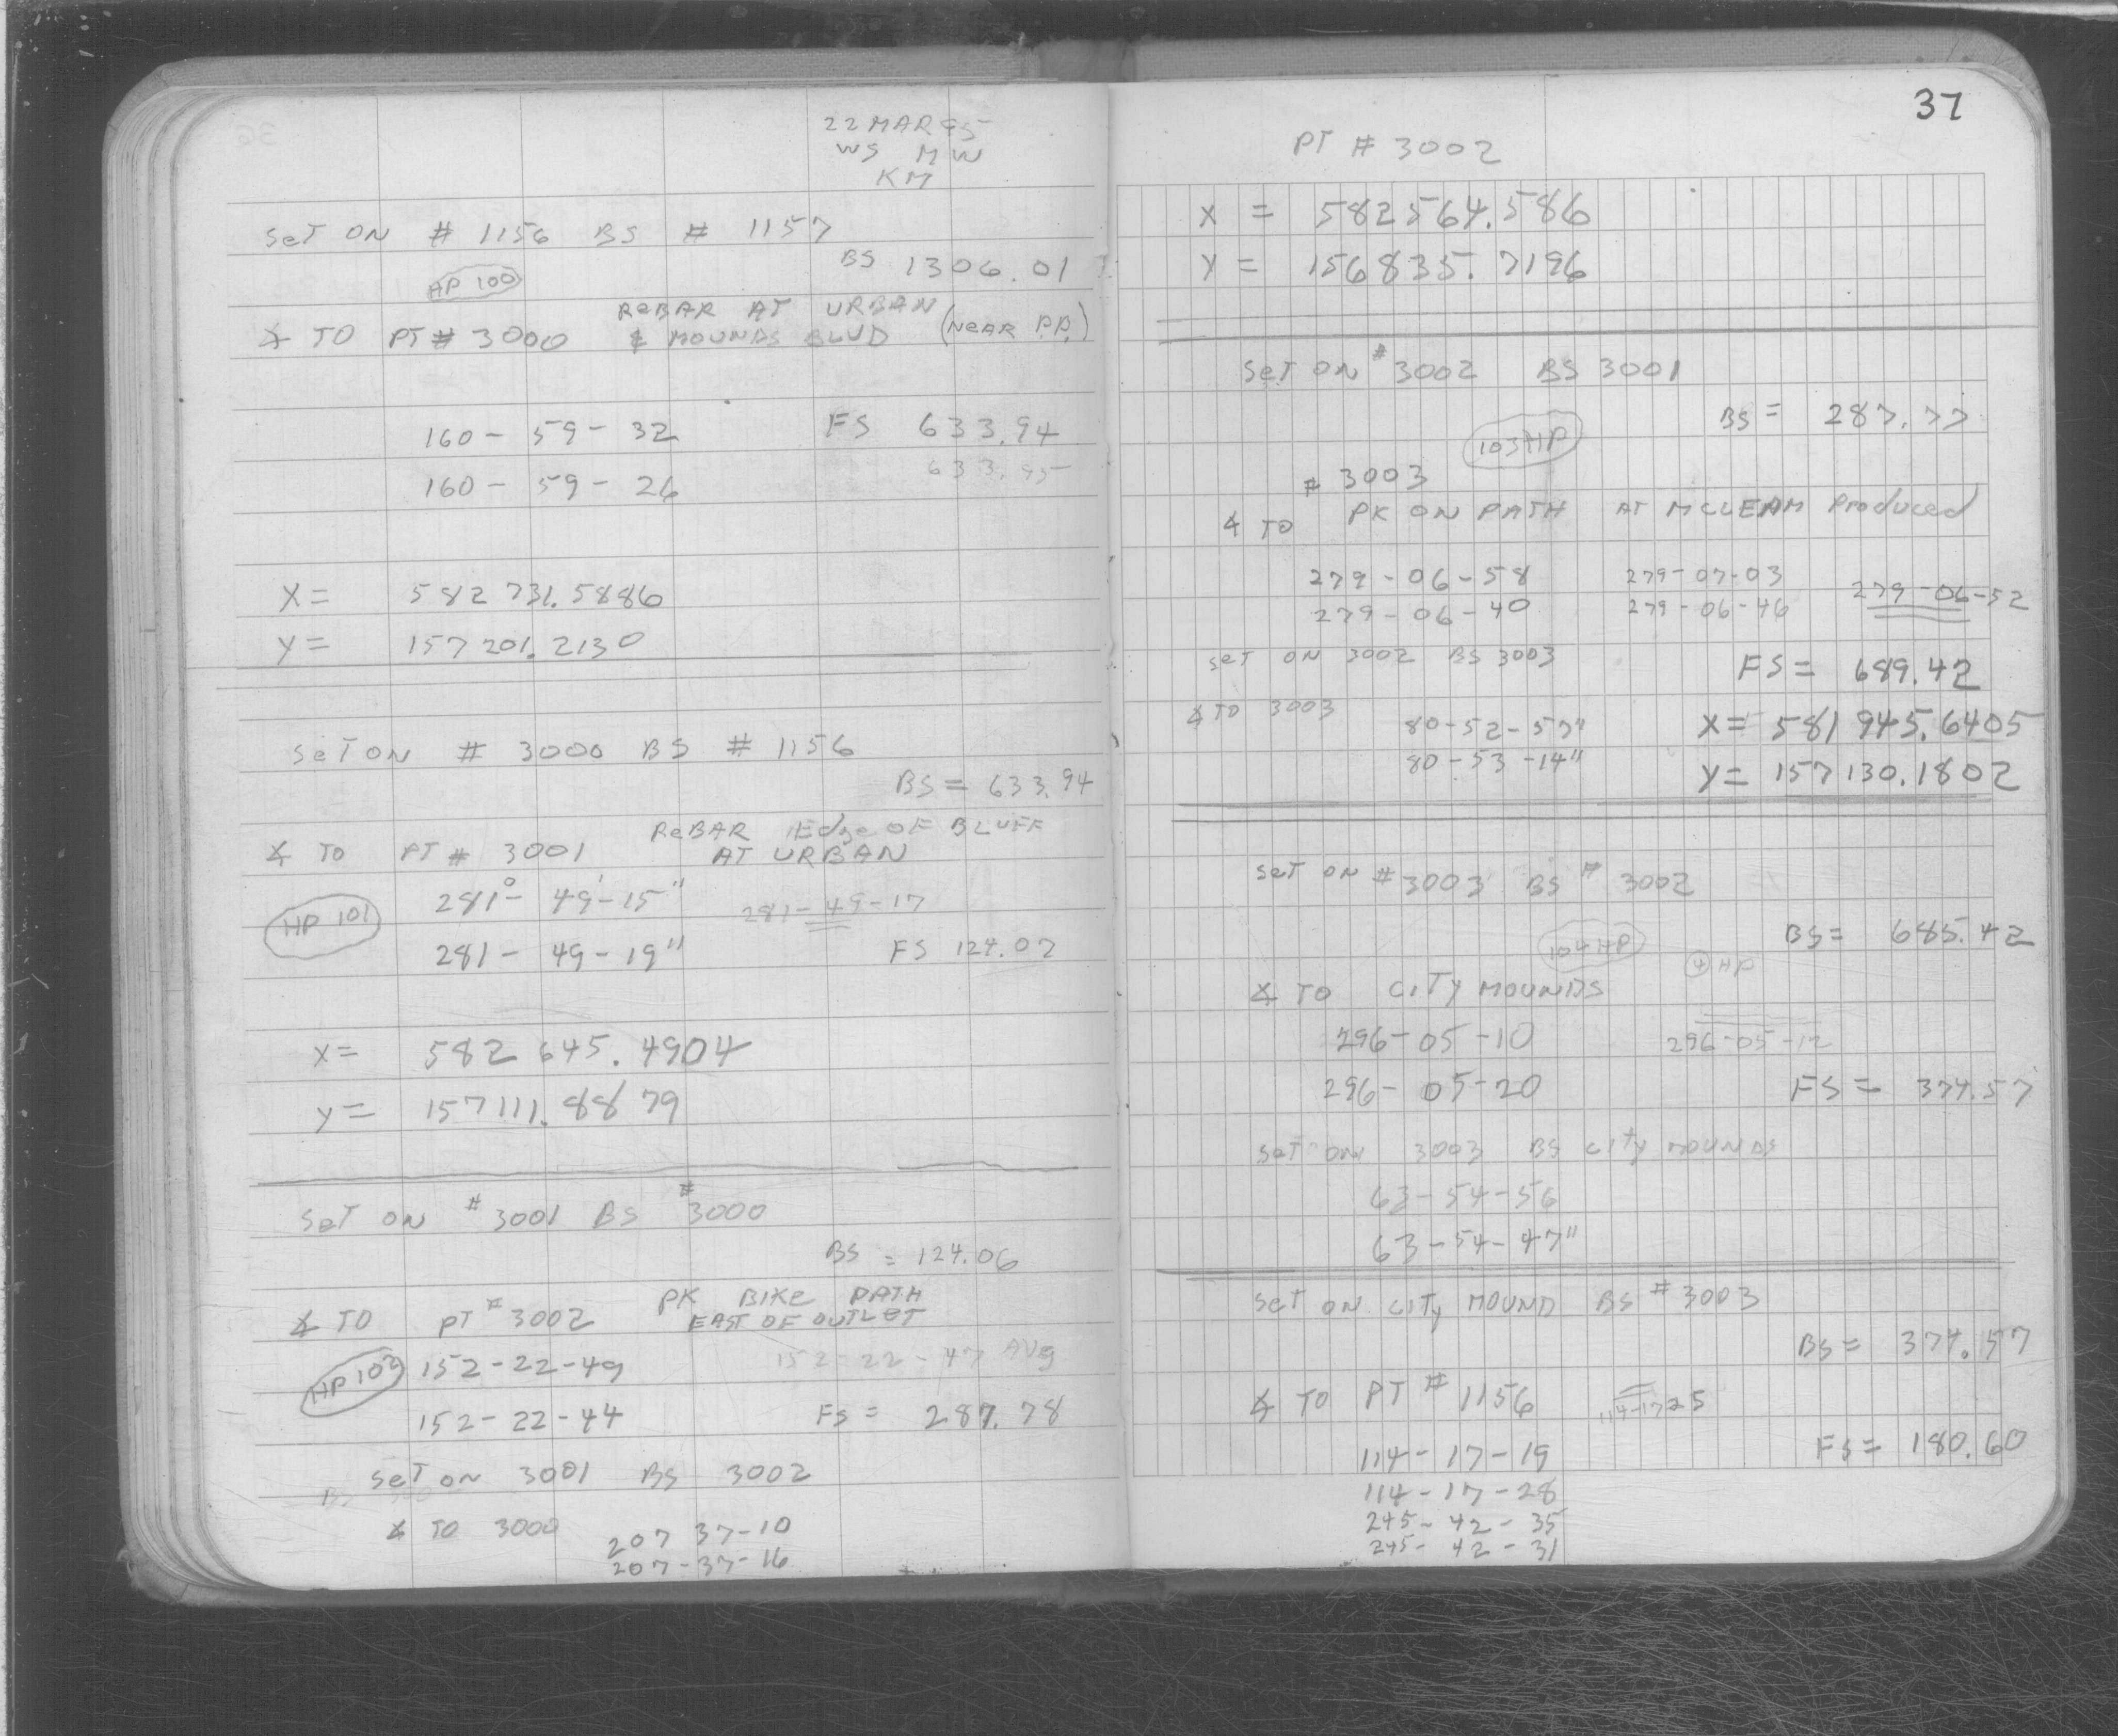 22 MAR 95
WS MW
KM
SeT ON # 1156 BS # 1157
BS 1306.01
HP 100
ReBAR AT URBAN
∡ TO PT # 3000 & MOUNDS BLVD (NeAR P.P.)
160 - 59 - 32 FS 633.94
633.95
160 - 59 - 26
X = 582 731.5886
Y = 157 201.2130
SeT ON # 3000 BS # 1156
BS = 633.94
ReBAR Edge OF BLUFF
∡ TO PT # 3001 AT URBAN
281° - 49' - 15"
HP 101 281 - 49 - 17
281 - 49 - 19" FS 124.07
X = 582 645.4904
Y = 157 111.8879
SeT ON # 3001 BS # 3000
BS = 124.06
PK BIKe PATH
∡ TO PT # 3002 EAST OF OUTLeT
HP 102 152 - 22 - 49 152 - 22 - 47 AVg
152 - 22 - 44 FS = 287.78
SeT ON 3001 BS 3002
∡ TO 3000
207 37 - 10
207 - 37 - 16
37
PT # 3002
X = 582 564.586
Y = 156 835.7196
SeT ON # 3002 BS 3001
BS = 287.77
103 HP
# 3003
∡ TO PK ON PATH AT MCLEAM Produced
279 - 06 - 58 279 - 07 - 03 279 - 06 - 52
279 - 06 - 40 279 - 06 - 46
SeT ON 3002 BS 3003 FS = 689.42
∡ TO 3003 80 - 52 - 57" X = 581 945.6405
80 - 53 - 14" Y = 157 130.1802
SeT ON # 3003 BS # 3002
BS = 685.42
104 HP
4 HP
∡ TO CITy MOUNDS
296 - 05 - 10 296 - 05 - 12
296 - 05 - 20 FS = 374.57
SeT ON 3003 BS CITy MOUNDS
63 - 54 - 56
63 - 54 - 47"
SeT ON CITy MOUND BS # 3003
BS = 374.57
∡ TO PT # 1156 114-17-25
114 - 17 - 19 FS = 180.60
114 - 17 - 28
245 - 42 - 35
245 - 42 - 31